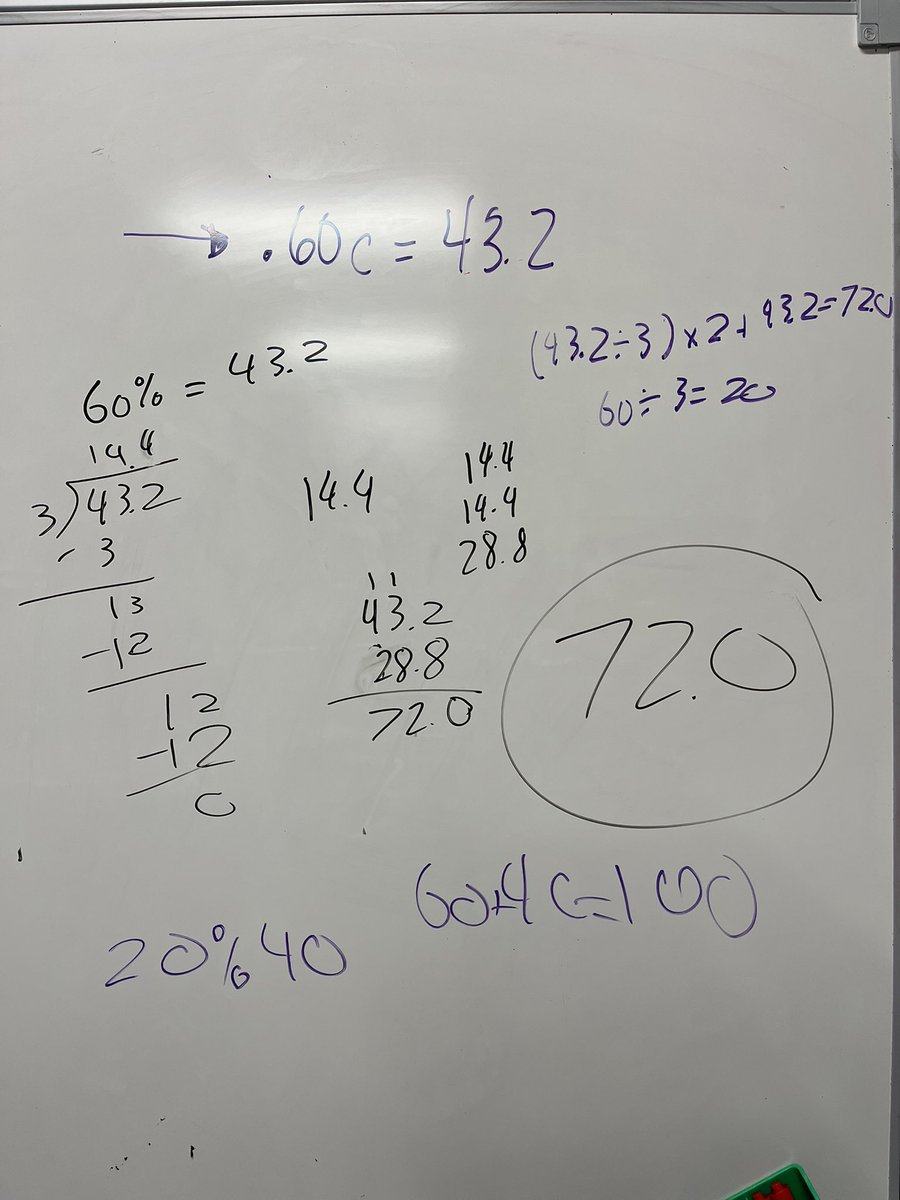 .60c = 43.2
(43.2÷3)×2+43.2=72.0
60÷3=20
60% = 43.2
14.4
3)43.2
- 3
13
-12
12
-12
0
14.4
14.4
14.4
28.8
11
43.2
28.8
72.0
72.0
60+40=100
20% 40